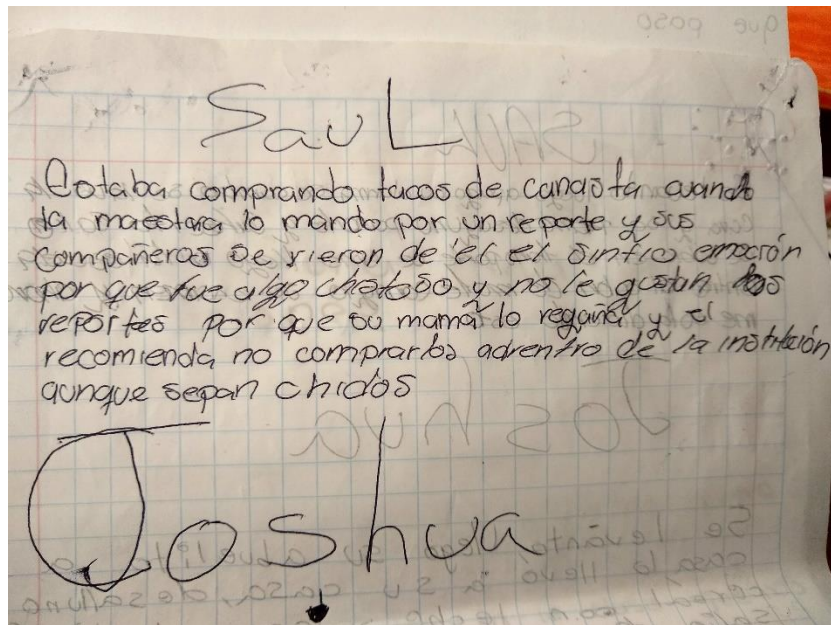 que paso
SauL
Estaba comprando tacos de canasta cuando
la maestara lo mando por un reporte y sus
compañeros se rieron de él el sintio emoción
por que fue algo chistoso y no le gustan los
reportes por que su mamá lo regaña y el
recomienda no comprarlos adrentro de la institución
aunque sepan chidos
Joshua